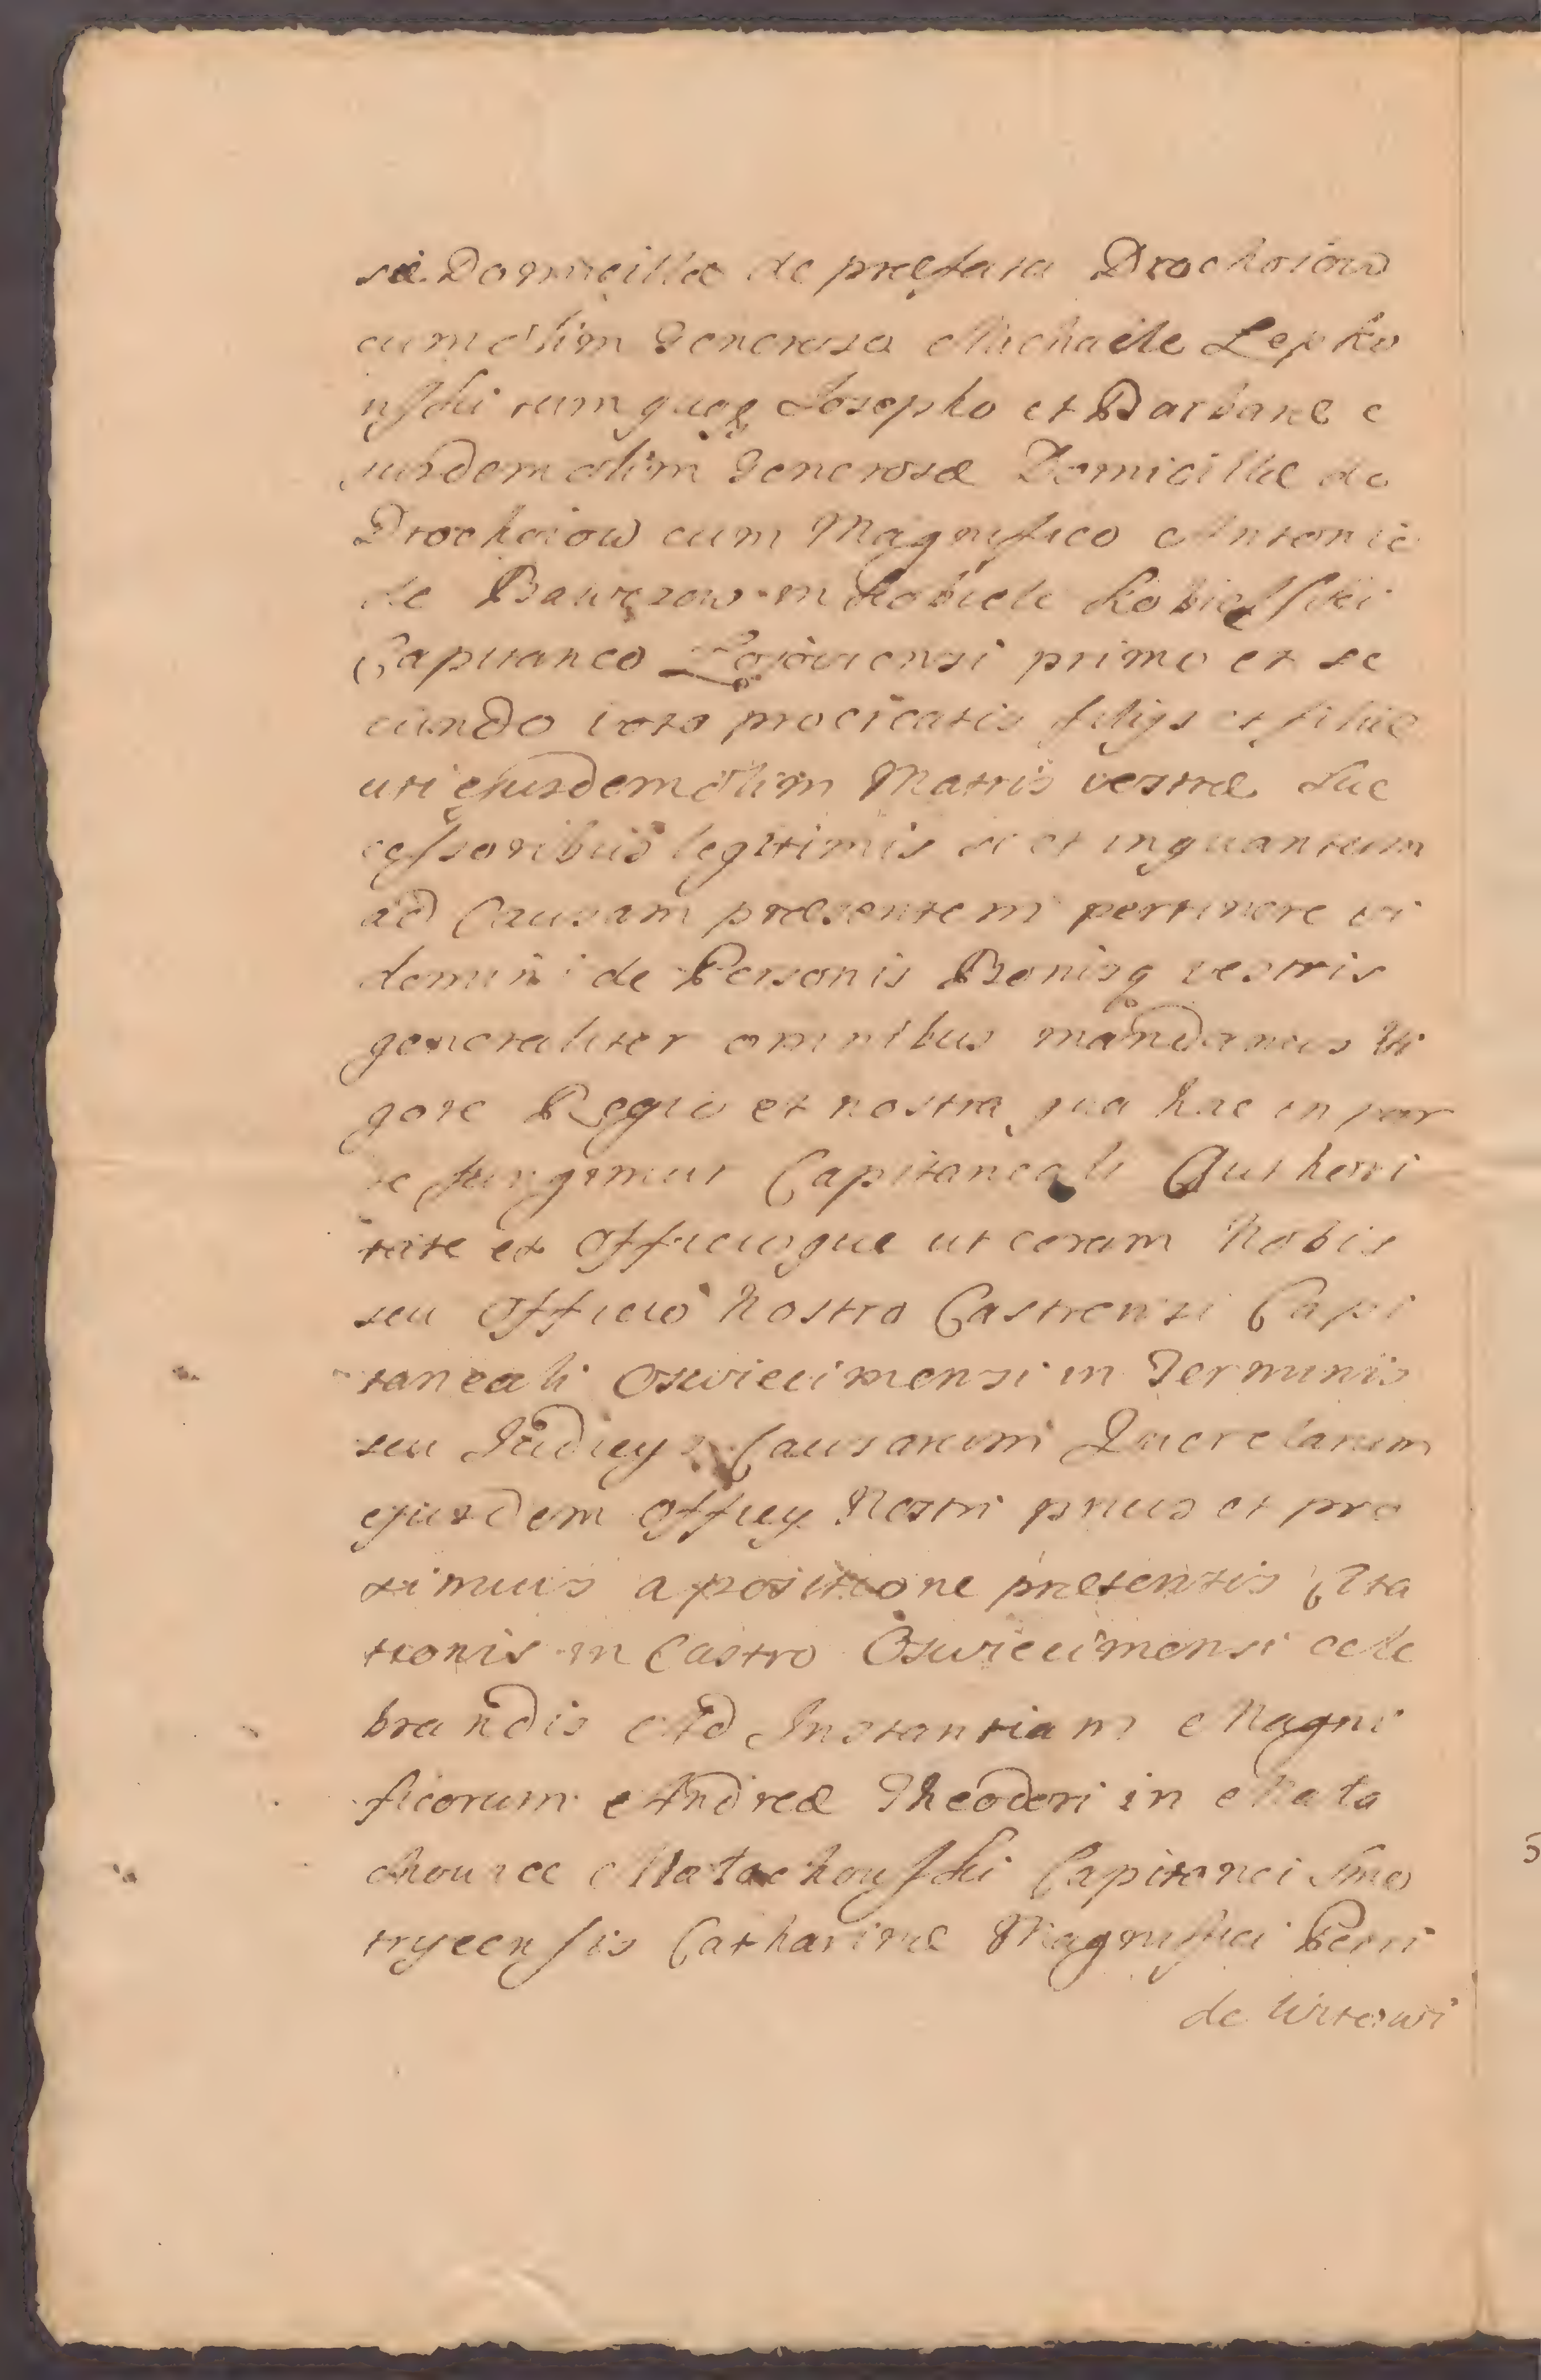 sæ Domicillæ de præfata Drochoiow
cum olim Generoso Michaele Lepko
wski tum quoq Josepho et Barbaræ e
jusdem olim Generosæ Domicillæ de
Drochoiow cum Magnifico Antonio
de Bawczow in Kobiele Kobielski
Capitaneo primo et se
cundo voto procreatis filijs et filiæ
uti ejusdem olim Matris vestræ Suc
cessoribus legitimis si et inquantum
ad Causam præsentem pertinere vi
demini de Personis Bonisq vestris
generaliter omnibus mandamus Vi
gore Regio et nostra qua hac in par
te fungimur Capitaneali Authori
tate et Officiique ut coram Nobis
seu Officio Nostro Castrensi Capi
taneali Oswiecimensi in Terminis
seu Judicys Causarum Querelarum
ejusdem Officy Nostri pnius et pro
ximius a positione præsentis Cita
tionis in Castro Oswiecimensi cele
brandis Ad Instantiam Magni
ficorum Andreæ Theodori in Mała
chowice Małachowski Capitanei Smo
tryecensis Catharinæ Magnifici Petri
de Witowi
5